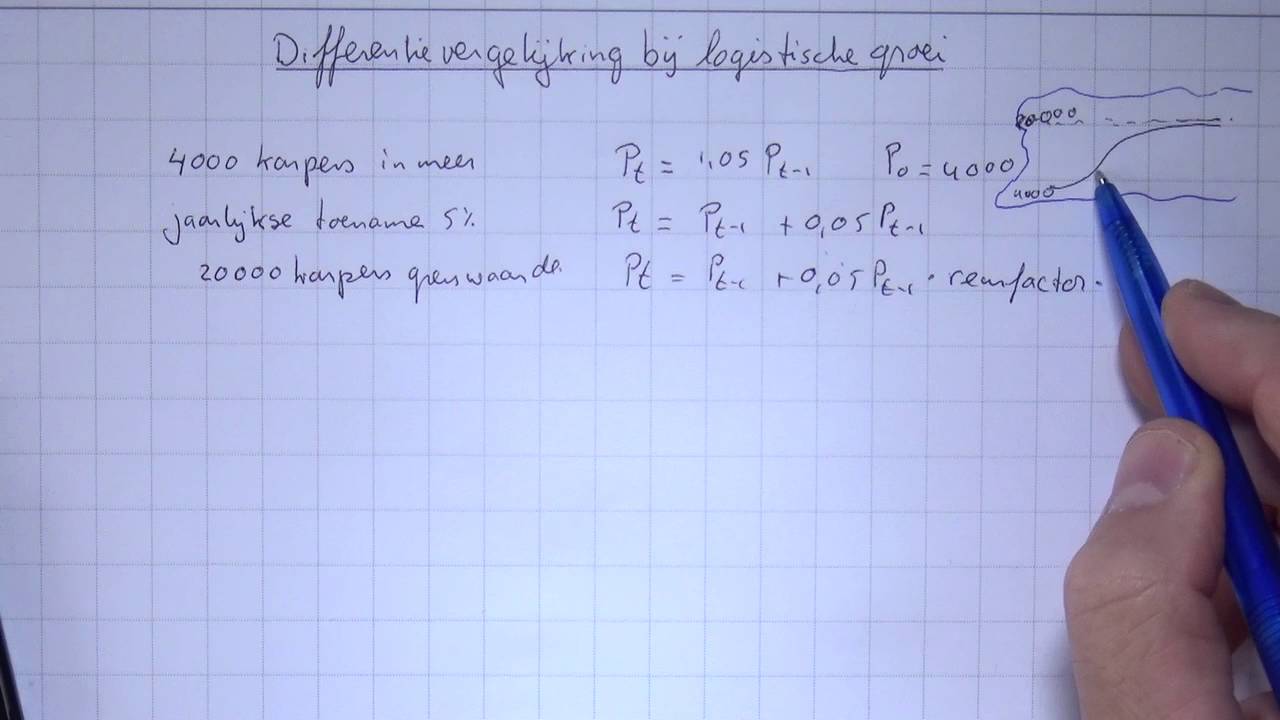 Differentievergelijking bij logistische groei
4000 karpers in meer
P_t = 1,05 P_{t-1} P_0 = 4000
jaarlijkse toename 5%
P_t = P_{t-1} + 0,05 P_{t-1}
20000 karpers grenswaarde.
P_t = P_{t-1} + 0,05 P_{t-1} · remfactor.
20000
4000